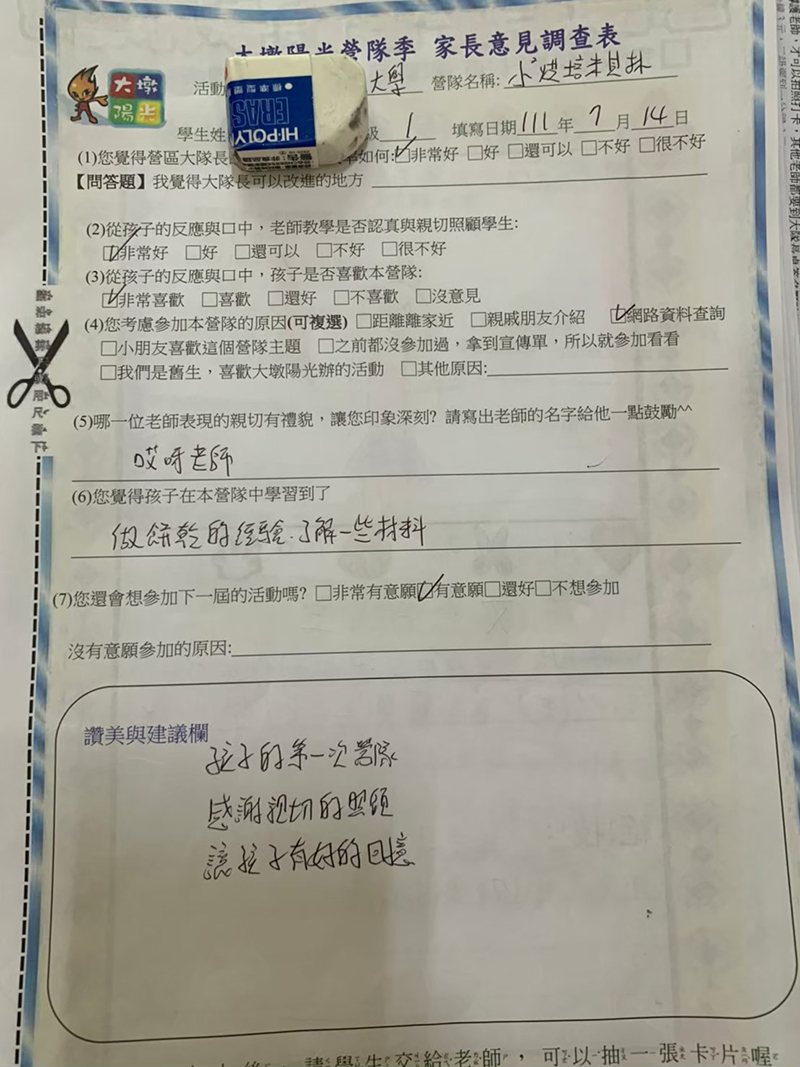 大墩陽光營隊季 家長意見調查表
大墩
陽光
活動 大學 營隊名稱: 小烘焙
HI-POLY
ERAS
學生姓 級 1 填寫日期 111 年 7 月 14 日
(1)您覺得營區大隊長 如何:☑非常好 □好 □還可以 □不好 □很不好
【問答題】我覺得大隊長可以改進的地方
(2)從孩子的反應與口中,老師教學是否認真與親切照顧學生:
☑非常好 □好 □還可以 □不好 □很不好
(3)從孩子的反應與口中,孩子是否喜歡本營隊:
☑非常喜歡 □喜歡 □還好 □不喜歡 □沒意見
(4)您考慮參加本營隊的原因(可複選) □距離離家近 □親戚朋友介紹 ☑網路資料查詢
□小朋友喜歡這個營隊主題 □之前都沒參加過,拿到宣傳單,所以就參加看看
□我們是舊生,喜歡大墩陽光辦的活動 □其他原因:
(5)哪一位老師表現的親切有禮貌,讓您印象深刻? 請寫出老師的名字給他一點鼓勵^^
哎呀老師
(6)您覺得孩子在本營隊中學習到了
做餅乾的經驗.了解一些材料
(7)您還會想參加下一屆的活動嗎? □非常有意願☑有意願□還好□不想參加
沒有意願參加的原因:
讚美與建議欄
孩子的第一次營隊
感謝親切的照顧
讓孩子有好的回憶
後,請學生交給老師,可以抽一張卡片喔